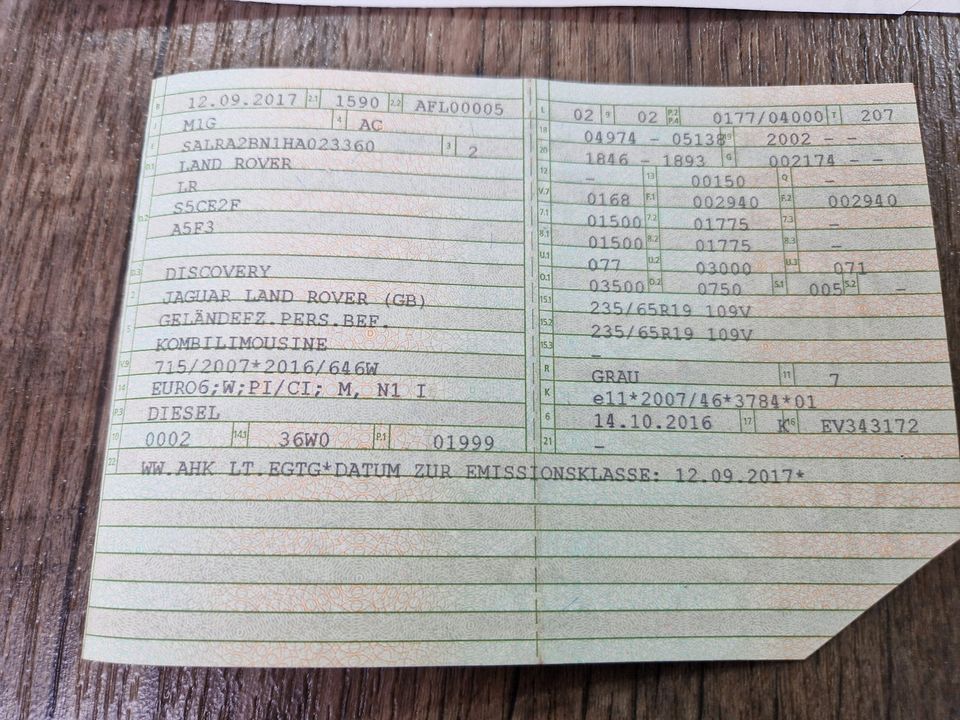 B 12.09.2017 2.1 1590 2.2 AFL00005
J M1G 4 AC
E SALRA2BN1HA023360 3 2
D.1 LAND ROVER
LR
S5CE2F
D.2 A5F3
D.3 DISCOVERY
2 JAGUAR LAND ROVER (GB)
5 GELÄNDEFZ.PERS.BEF.
KOMBILIMOUSINE
V.9 715/2007*2016/646W
14 EURO6;W;PI/CI; M, N1 I
P.3 DIESEL
10 0002 14.1 36W0 P.1 01999
L 02 9 02 P.2 P.4 0177/04000 T 207
18 04974 - 05138 19 2002 - -
20 1846 - 1893 G 002174 - -
12 - 13 00150 Q -
V.7 0168 F.1 002940 F.2 002940
7.1 01500 7.2 01775 7.3 -
8.1 01500 8.2 01775 8.3 -
U.1 077 U.2 03000 U.3 071
O.1 03500 O.2 0750 S.1 005 S.2 -
15.1 235/65R19 109V
15.2 235/65R19 109V
15.3 -
R GRAU 11 7
K e11*2007/46*3784*01
6 14.10.2016 17 K 16 EV343172
21 -
22 WW.AHK LT.EGTG*DATUM ZUR EMISSIONSKLASSE: 12.09.2017*